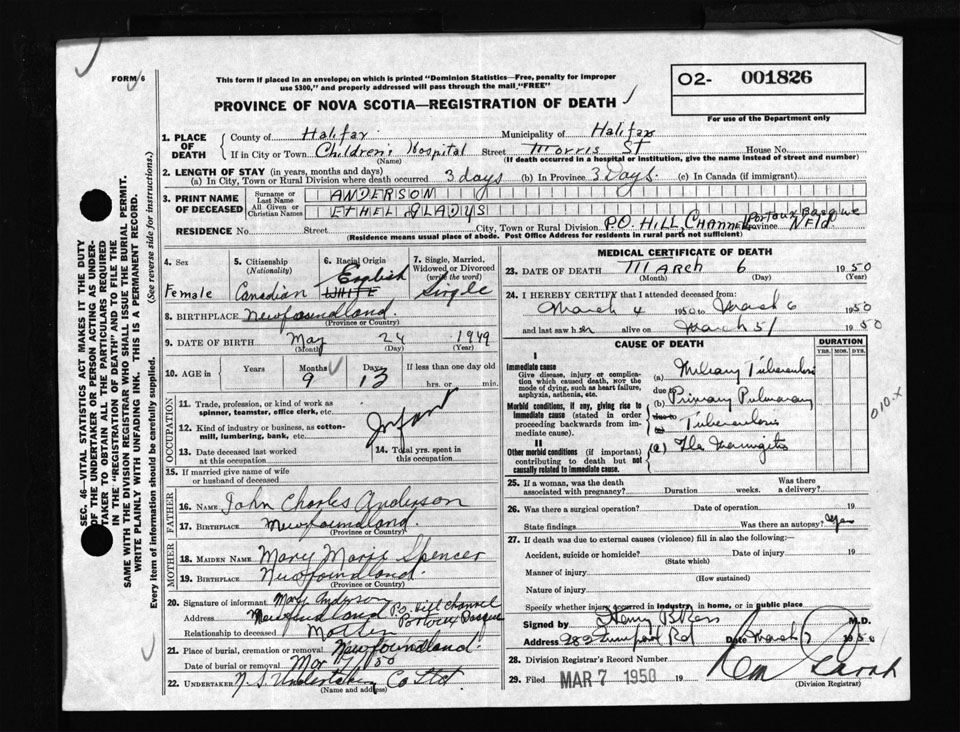 FORM 6
This form if placed in an envelope, on which is printed "Dominion Statistics—Free, penalty for improper
use $300," and properly addressed will pass through the mail "FREE"
PROVINCE OF NOVA SCOTIA—REGISTRATION OF DEATH
O2- 001826
For use of the Department only
SEC. 46—VITAL STATISTICS ACT MAKES IT THE DUTY
OF THE UNDERTAKER OR PERSON ACTING AS UNDER-
TAKER TO OBTAIN ALL THE PARTICULARS REQUIRED
IN THE "REGISTRATION OF DEATH" AND TO FILE THE
SAME WITH THE DIVISION REGISTRAR WHO SHALL ISSUE THE BURIAL PERMIT.
WRITE PLAINLY WITH UNFADING INK. THIS IS A PERMANENT RECORD.
Every item of information should be carefully supplied. (See reverse side for instructions.)
1. PLACE OF DEATH County of Halifax Municipality of Halifax
If in City or Town Children's Hospital Street Morris St House No.
(Name) (If death occurred in a hospital or institution, give the name instead of street and number)
2. LENGTH OF STAY (in years, months and days)
(a) In City, Town or Rural Division where death occurred 3 days (b) In Province 3 Days. (c) In Canada (if immigrant)
3. PRINT NAME OF DECEASED Surname or Last Name ANDERSON
All Given or Christian Names ETHEL GLADYS
RESIDENCE No. Street City, Town or Rural Division P.O. HILL, CHANNEL Province Nfld.
(Residence means usual place of abode. Post Office Address for residents in rural parts not sufficient)
4. Sex Female
5. Citizenship (Nationality) Canadian
6. Racial Origin English WHITE
7. Single, Married, Widowed or Divorced (write the word) Single
8. BIRTHPLACE Newfoundland.
(Province or Country)
9. DATE OF BIRTH May 24 1949
(Month) (Day) (Year)
10. AGE in Years Months 9 Days If less than one day old hrs. or min.
OCCUPATION
11. Trade, profession, or kind of work as
spinner, teamster, office clerk, etc.
Infant
12. Kind of industry or business, as cotton-
mill, lumbering, bank, etc.
13. Date deceased last worked
at this occupation
14. Total yrs. spent in
this occupation
15. If married give name of wife
or husband of deceased
FATHER
16. NAME John Charles Anderson
17. BIRTHPLACE Newfoundland.
(Province or Country)
MOTHER
18. MAIDEN NAME Mary Marie Spencer
19. BIRTHPLACE Newfoundland.
(Province or Country)
20. Signature of informant Mary Anderson
Address Newfoundland P.O. Hill Channel
Relationship to deceased Mother
21. Place of burial, cremation or removal Newfoundland.
Date of burial or removal Mar 7/50
22. UNDERTAKER N.S. Undertaking Co Ltd.
(Name and address)
MEDICAL CERTIFICATE OF DEATH
23. DATE OF DEATH March 6 1950
(Month) (Day) (Year)
24. I HEREBY CERTIFY that I attended deceased from:
March 4 1950 to March 6 1950
and last saw her alive on March 5/ 1950
CAUSE OF DEATH
DURATION
YRS. MOS. DYS.
I
Immediate cause
Give disease, injury or compli-
cation which caused death, not the
mode of dying, such as heart failure,
asphyxia, asthenia, etc.
(a) Miliary Tuberculosis
due to
Morbid conditions, if any, giving rise to
immediate cause (stated in order
proceeding backwards from im-
mediate cause).
(b) Primary Pulmonary
due to Tuberculosis
II
Other morbid conditions (if important)
contributing to death but not
causally related to immediate cause.
(c) Tbc Meningitis
010.x
25. If a woman, was the death
associated with pregnancy? Duration weeks. Was there
a delivery?
26. Was there a surgical operation? Date of operation 19
State findings Was there an autopsy? Yes
27. If death was due to external causes (violence) fill in also the following:—
Accident, suicide or homicide? Date of injury 19
(State which)
Manner of injury
(How sustained)
Nature of injury
Specify whether injury occurred in industry, in home, or in public place
Signed by Henry B Ross M.D.
Address 282 Rd Date March 7 1950
28. Division Registrar's Record Number
29. Filed MAR 7 1950 19
(Division Registrar)